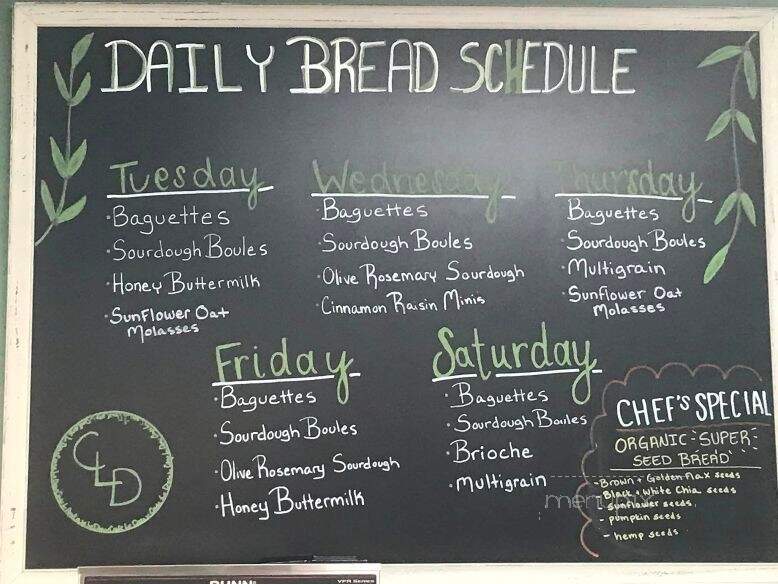 DAILY BREAD SCHEDULE
Tuesday
·Baguettes
·Sourdough Boules
·Honey Buttermilk
·Sunflower Oat
Molasses
Wednesday
·Baguettes
·Sourdough Boules
·Olive Rosemary Sourdough
·Cinnamon Raisin Minis
Thursday
·Baguettes
·Sourdough Boules
·Multigrain
·Sunflower Oat
Molasses
Friday
·Baguettes
·Sourdough Boules
·Olive Rosemary Sourdough
·Honey Buttermilk
Saturday
·Baguettes
·Sourdough Boules
·Brioche
·Multigrain
CHEF'S SPECIAL
ORGANIC SUPER
SEED BREAD
-Brown + Golden Flax seeds
Black + White Chia seeds
-sunflower seeds
-pumpkin seeds
-hemp seeds
CLD
BUNN
VPR Series